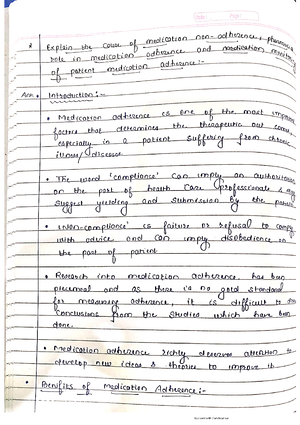 Date: Page:
Q Explain the cause of medication non-adherence, pharmacist
role in medication adherence and medication
of patient medication adherence :-
Ans. Introduction :-
• Medication adherence is one of the most important
factors that determines the therapeutic out come,
especially in a patient suffering from chronic
illness/disease
• The word 'compliance' can imply an
on the part of health care professionals &
suggest yielding and submission by the
• 'Non-compliance' is failure or refusal to comply
with advice and can imply disobedience in
the part of patient
• Research into medication adherence has been
piecemeal and as there is no gold standard
for measuring adherence, it is difficult to
conclusions from the studies which have been
done.
• Medication adherence richly deserves attention to
develop new ideas & theories to improve it.
• Benefits of Medication Adherence :-